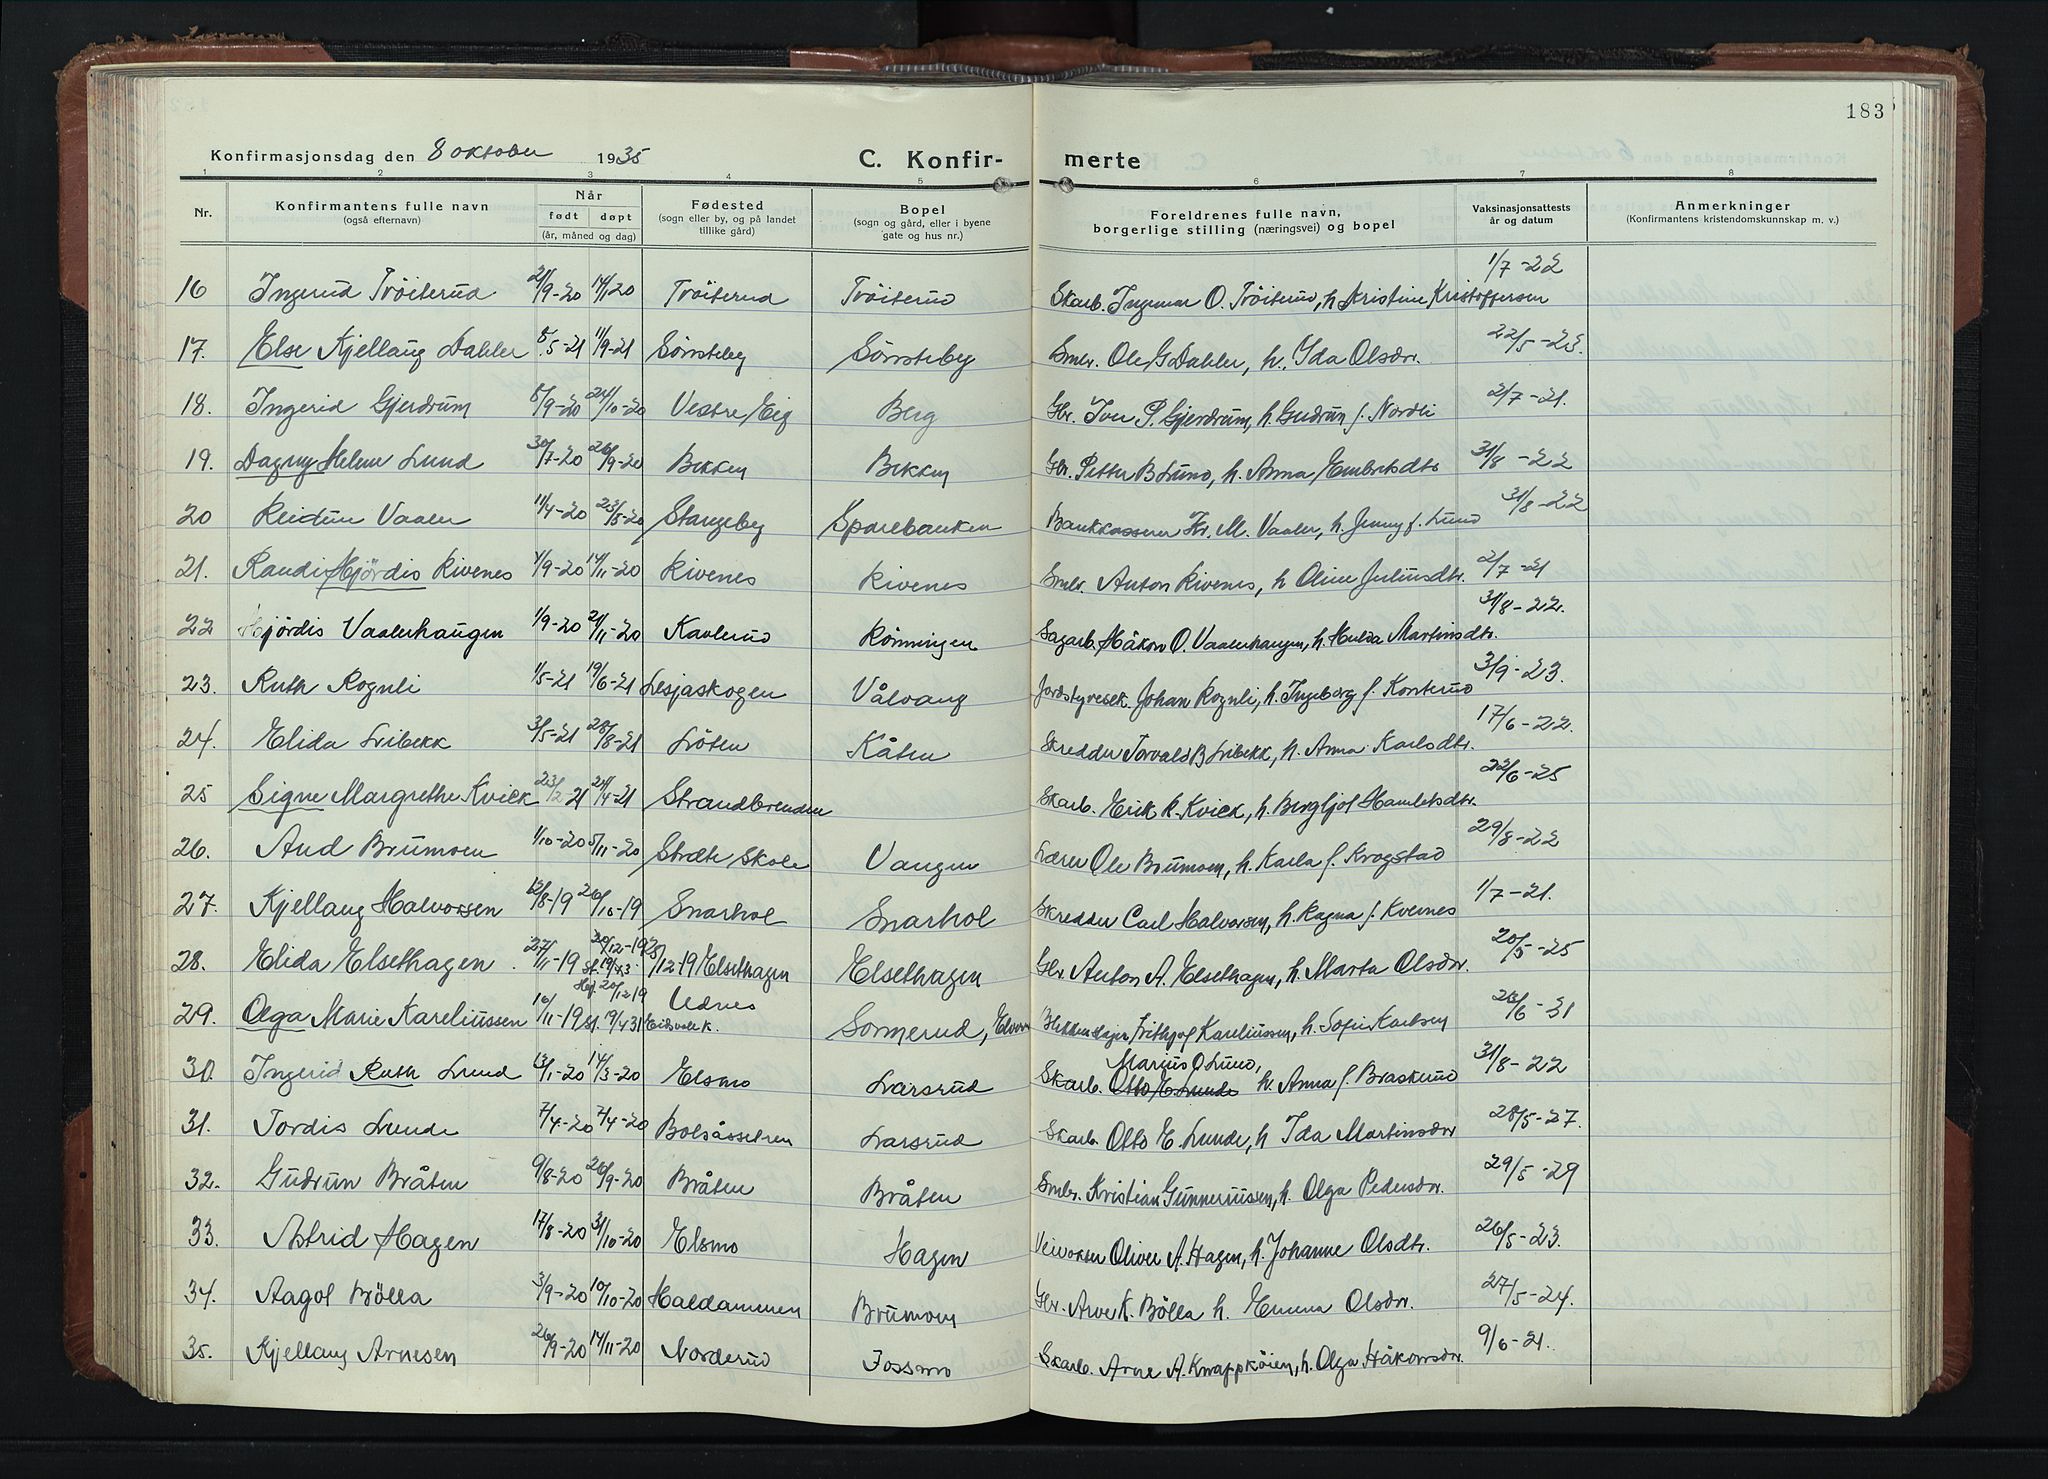 183
Konfirmasjonsdag den 8 oktober 1935 C. Konfirmerte
1 2 3 4 5 6 7 8
Nr. Konfirmantens fulle navn (også efternavn) Når født døpt (år, måned og dag) Fødested (sogn eller by, og på landet tillike gård) Bopel (sogn og gård, eller i byene gate og hus nr.) Foreldrenes fulle navn, borgerlige stilling (næringsvei) og bopel Vaksinasjonsattests år og datum Anmerkninger (Konfirmantens kristendomskunnskap m. v.)
16 Ingerud Tröiterud 21/9-20 14/11 20 Tröiterud Tröiterud Skarb. Ingemar O. Tröiterud, h Kristine Kristoffersen 1/7-22
17. Else Kjellaug Dahler 8/5-21 11/9-21 Sörsteby Sörsteby Smbr. Ole G Dahler, h. Ida Olsdr. 22/5-23.
18. Ingerid Gjerdrum 8/9-20 24/10-20 Vestre Eig Berg Gbr. Iver P. Gjerdrum, h. Gudrun f. Nordli 2/7-21.
19. Dagny Helene Lund 30/7-20 26/9-20 Bekken Bekken Gbr. Petter B Lund, h. Anna Embretsdtr 31/8-22
20 Reidun Vaaler 11/4-20 23/5-20 Stangeby Sparebanken Bankkasserer Kr. M. Vaaler, h. Jenny f. Lund 31/8-22
21. Randi Hjördis Kivenes 4/9-20 14/11-20 Kivenes Kivenes Smbr. Anton Kivenes, h Oline Juliusdtr. 2/7-21
22 Hjördis Vaalerhaugen 1/9-20 21/11-20 Kavlerud Rönningen Sagarb. Håkon O. Vaalerhaugen, h. Hulda Martinsdtr. 31/8-22.
23. Ruth Rognli 1/5-21 19/6-21 Lesjaskogen Vålvang Jordstyresek. Johan Rognli, h. Ingeborg f. Konterud 3/9-23.
24. Elida Libekk 3/5-21 28/8-21 Löten Kåten Skredder Torvald B Libekk, h. Anna Karlsdtr. 17/6-22.
25 Signe Margrethe Kvick 23/2-21 24/4-21 Strandbrenden Skarb. Erik K. Kvick, h. Bergljot Hamletsdtr. 22/6-25
26. Aud Brumoen 1/10-20 5/11-20 Stræte Skole Vangen Lærer Ole Brumoen, h. Karla f. Krogstad 29/8-22
27. Kjellaug Halvorsen 12/8-19 26/10-19 Snarhol Snarhol Skredder Carl Halvorsen, h. Ragna f. Kvernes 1/7-21.
28. Elida Elsethagen 27/11-19 20/12-19 Elsethagen Elsethagen Gbr Anton A. Elsethagen, h. Marta Olsdr. 20/5-25
29. Olga Marie Kareliussen 10/11-19 Hj. 20/12 19 st. 19/4 31 Udnes Eidsvoll k. Sormerud, Elvern Blikkenslager Frithjof Kareliussen, h. Sofie Karlsen 26/6-31
30. Ingerid Ruth Lund 13/1-20 14/3-20 Elsmo Larsrud Skarb. Otto E. Lunde Marius O Lund, h. Anna f. Braskerud 31/8-22
31. Tordis Lunde 7/4-20 7/4-20 Bolsåssetren Larsrud Skarb. Otto E. Lunde, h Ida Martinsdr 28/5-27.
32. Gudrun Bråten 9/8-20 26/9-20 Bråten Bråten Smbr. Kristian Gunneriussen, h. Olga Pedersdr. 29/5-29
33. Astrid Hagen 17/8-20 31/10-20 Elsmo Hagen Veivokter Oliver A. Hagen, h. Johanne Olsdtr. 26/5-23.
34. Aagot Bölla 3/9-20 10/10-20 Haldammen Brumoen Gbr. Arve K. Bölla h. Emma Olsdr. 27/5-24.
35. Kjellaug Arnesen 26/9-20 14/11-20 Norderud Jossmo Skarb. Arne A. Knappköien, h. Olga Håkonsdr. 9/6-21.